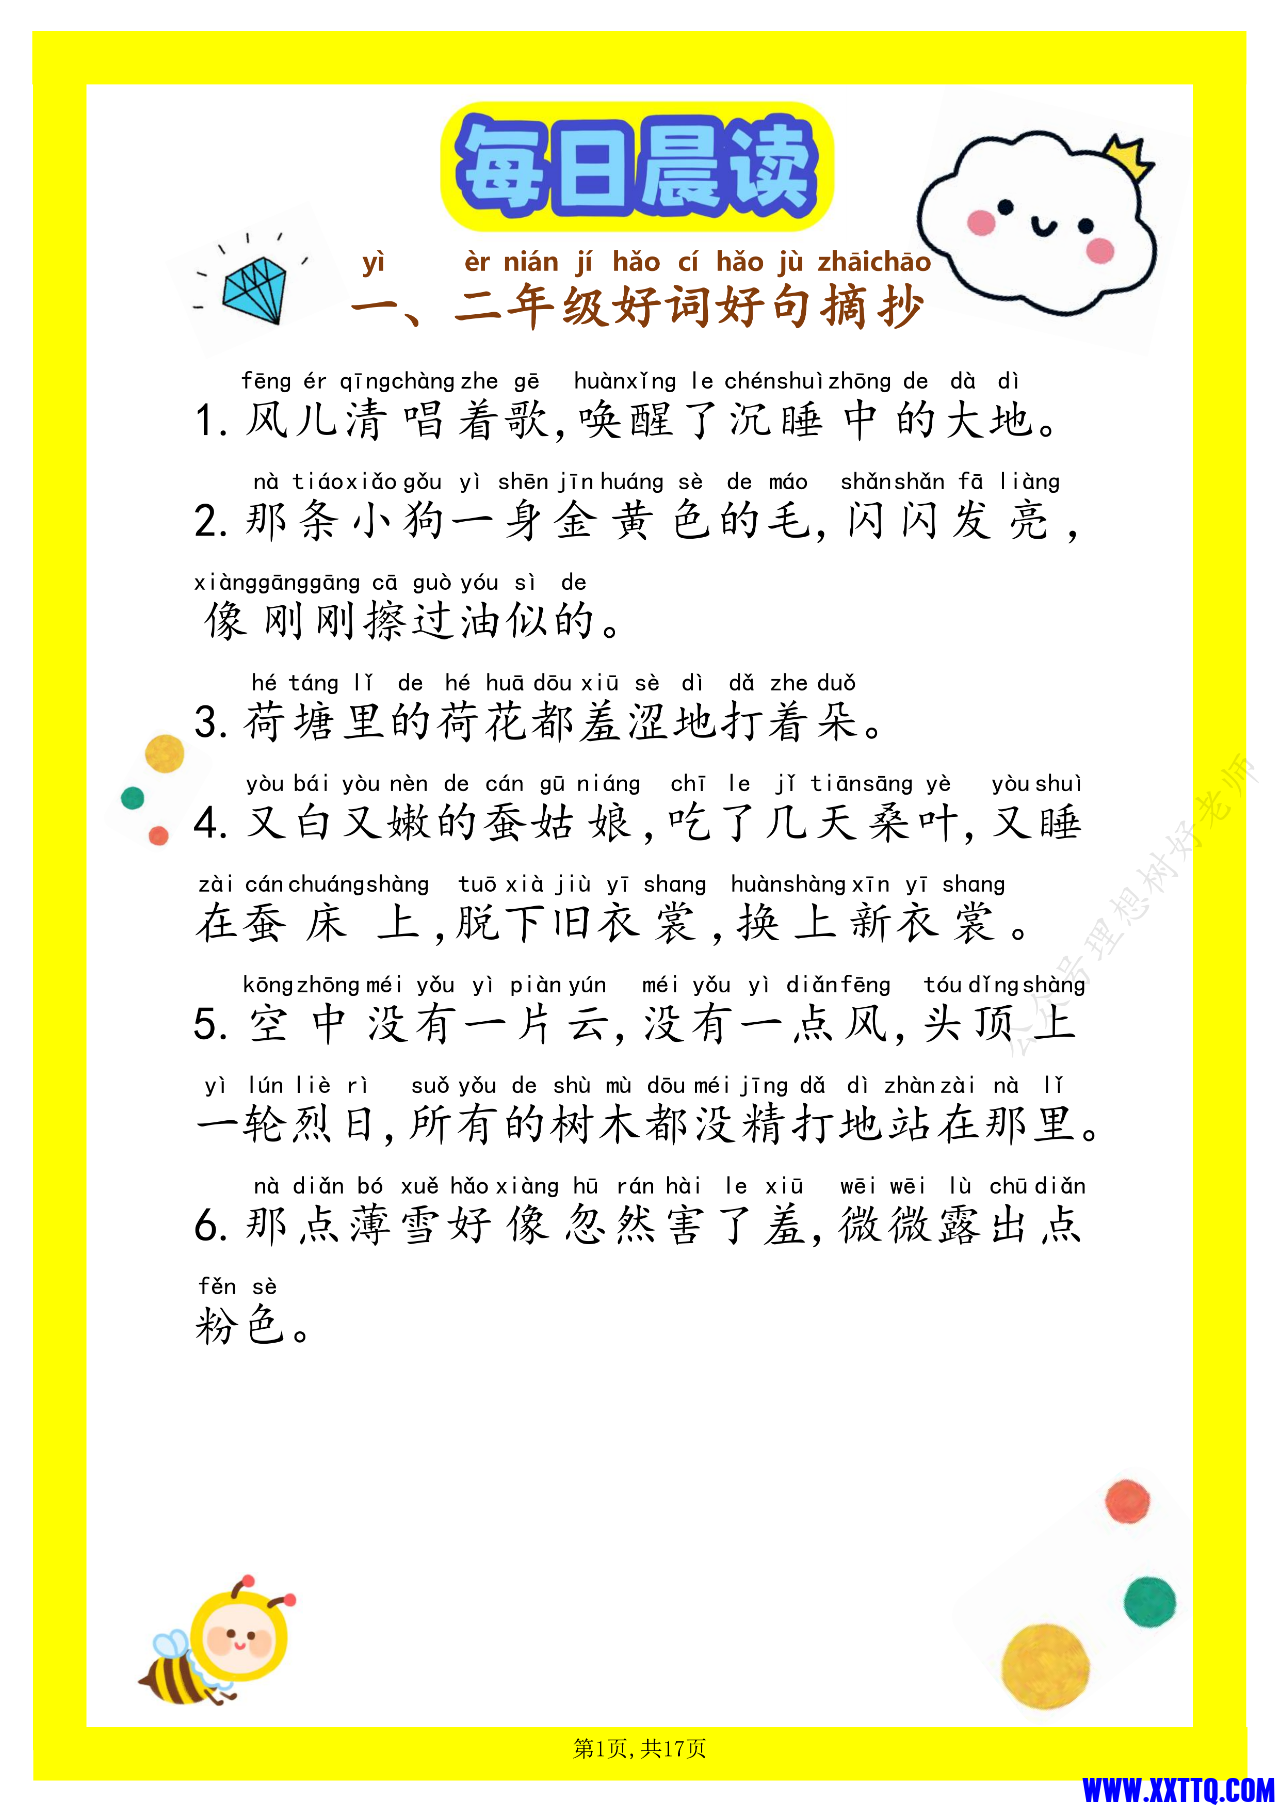 每日晨读
yì èr nián jí hǎo cí hǎo jù zhāichāo
一、二年级好词好句摘抄
fēng ér qīngchàng zhe gē huànxǐng le chénshuì zhōng de dà dì
1.风儿清唱着歌,唤醒了沉睡中的大地。
nà tiáo xiǎo gǒu yì shēn jīn huáng sè de máo shǎnshǎn fā liàng
2.那条小狗一身金黄色的毛,闪闪发亮,
xiànggānggāng cā guò yóu sì de
像刚刚擦过油似的。
hé táng lǐ de hé huā dōu xiū sè dì dǎ zhe duǒ
3.荷塘里的荷花都羞涩地打着朵。
yòu bái yòu nèn de cán gū niáng chī le jǐ tiānsāng yè yòu shuì
4.又白又嫩的蚕姑娘,吃了几天桑叶,又睡
zài cán chuángshàng tuō xià jiù yī shang huànshàng xīn yī shang
在蚕床上,脱下旧衣裳,换上新衣裳。
kōng zhōng méi yǒu yì piàn yún méi yǒu yì diǎnfēng tóu dǐng shàng
5.空中没有一片云,没有一点风,头顶上
yì lún liè rì suǒ yǒu de shù mù dōu méi jīng dǎ dì zhàn zài nà lǐ
一轮烈日,所有的树木都没精打地站在那里。
nà diǎn bó xuě hǎo xiàng hū rán hài le xiū wēi wēi lù chū diǎn
6.那点薄雪好像忽然害了羞,微微露出点
fěn sè
粉色。
公众号理想树好老师
第1页,共17页
WWW.XXTTQ.COM